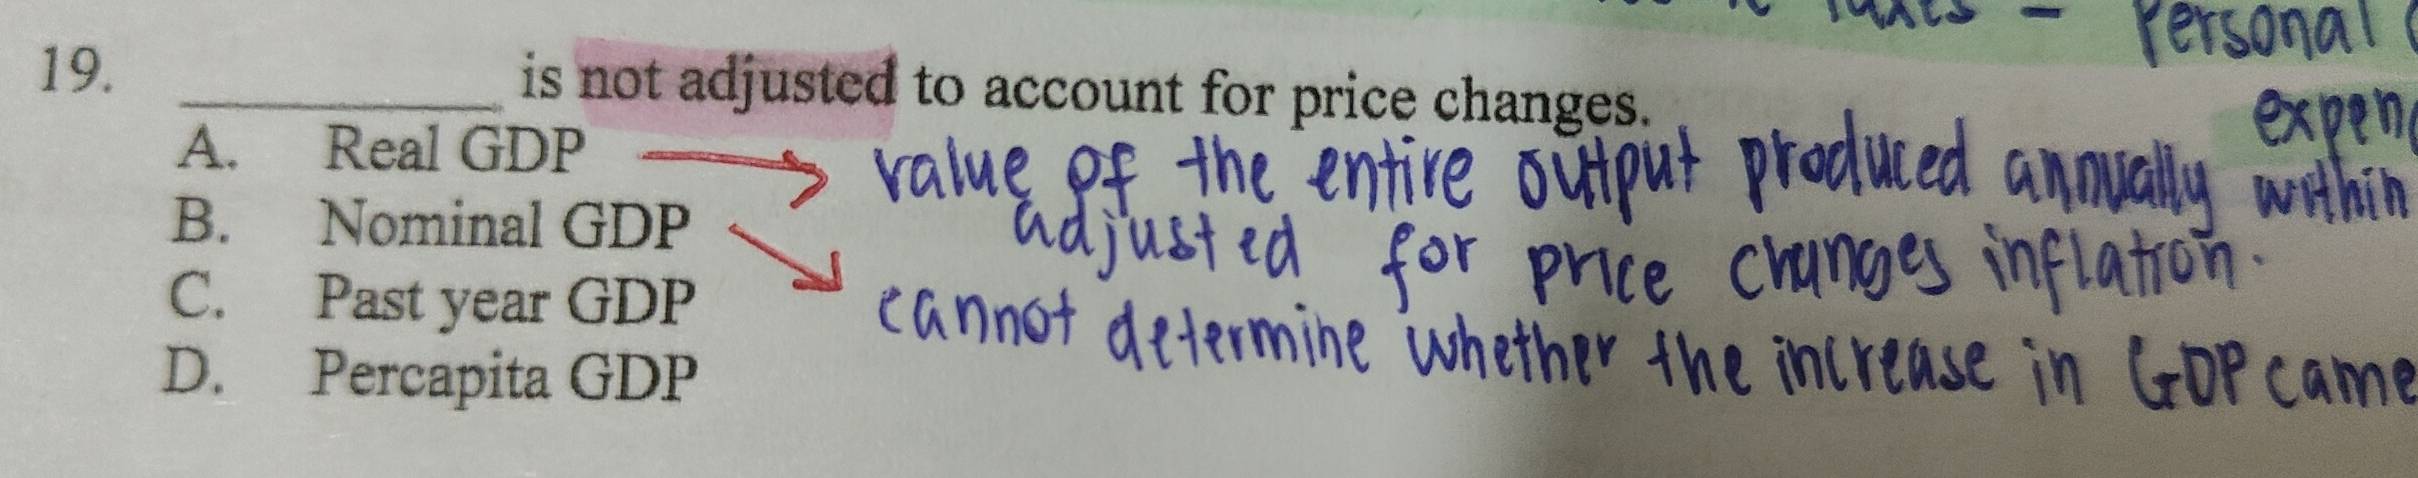 taxes - Personal
19. ________ is not adjusted to account for price changes.
expen
A. Real GDP → value of the entire output produced annually within
adjusted for price changes inflation.
B. Nominal GDP
C. Past year GDP
cannot determine whether the increase in GDP came
D. Percapita GDP